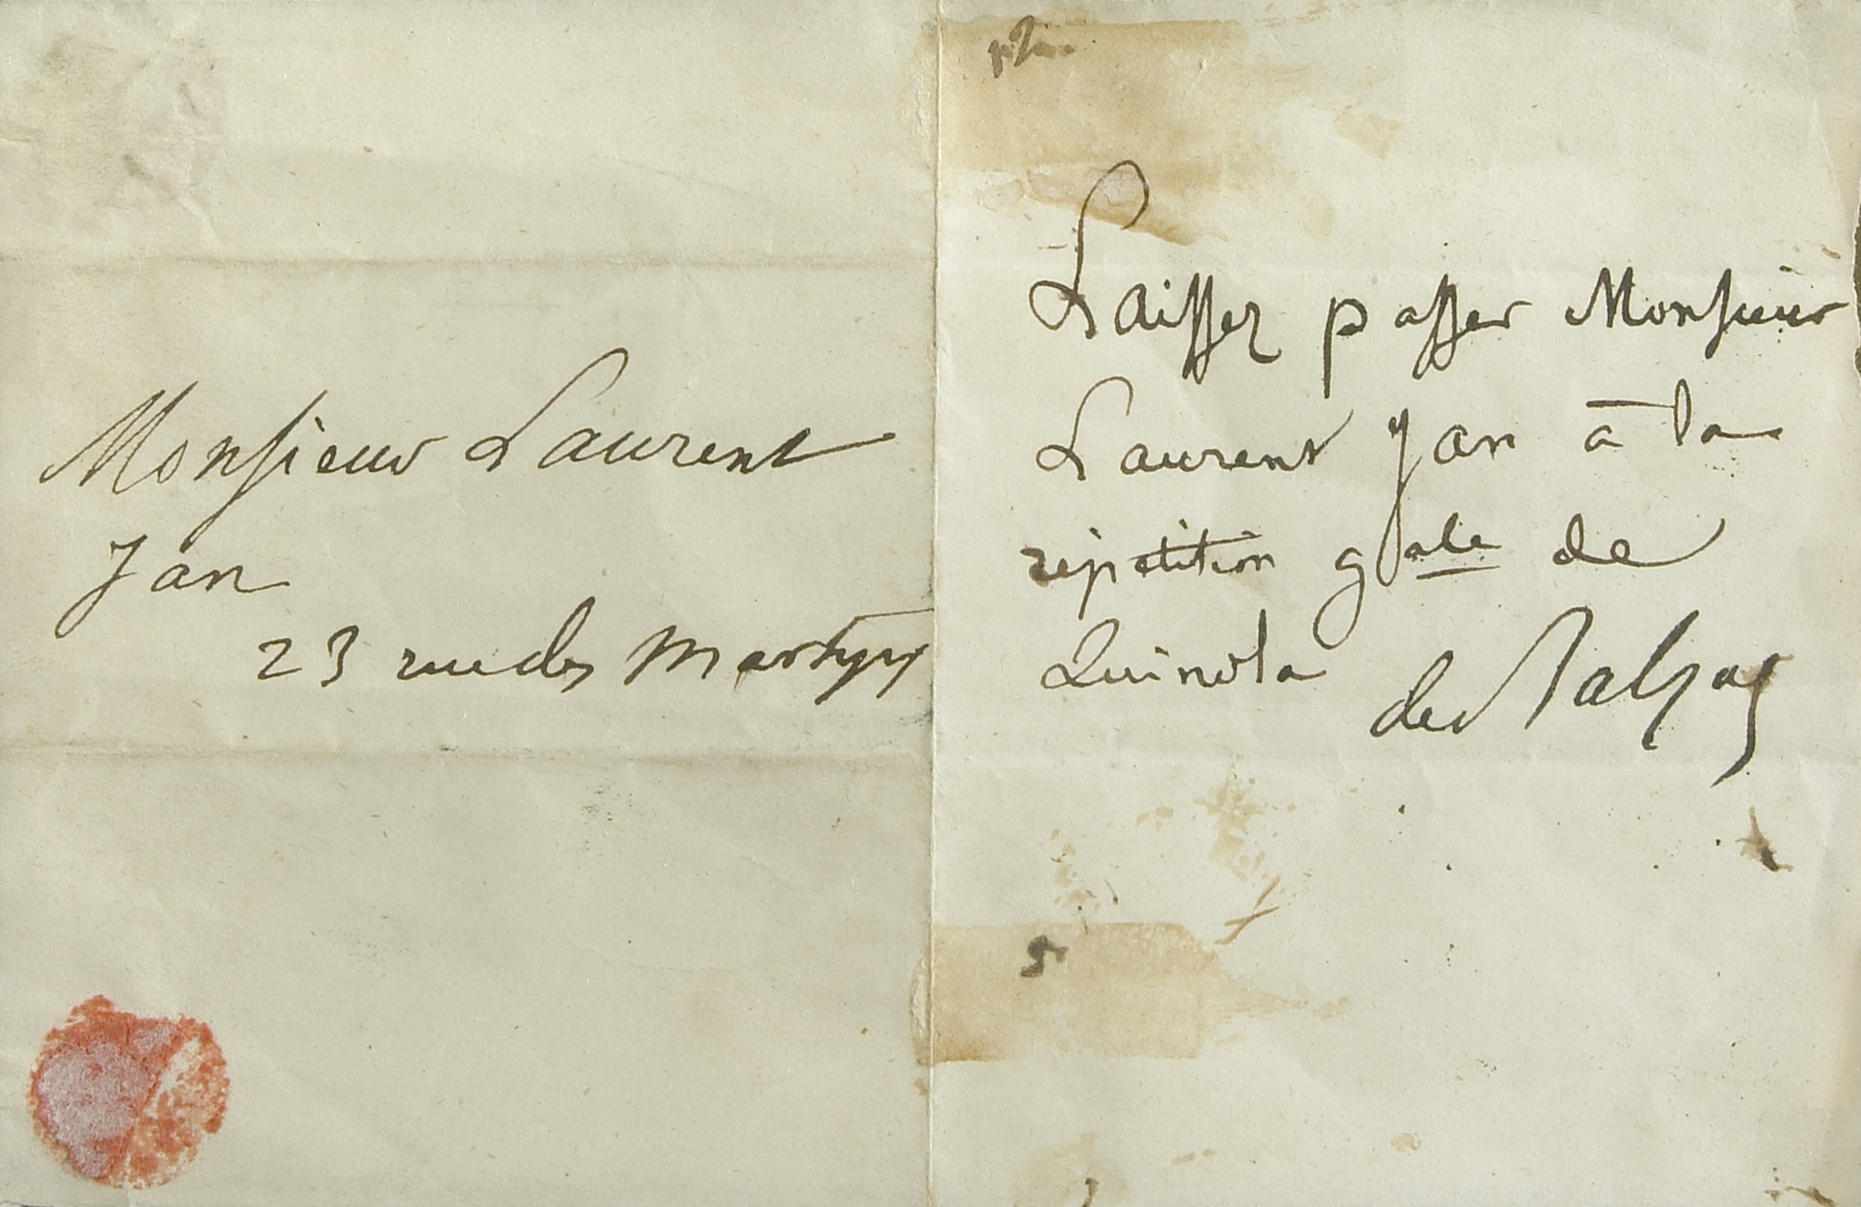 Monsieur Laurent
Jan
23 rue des Martyrs
Laissez passer Monsieur
Laurent Jan à la
répétition gale de
Quinola
de Balzac